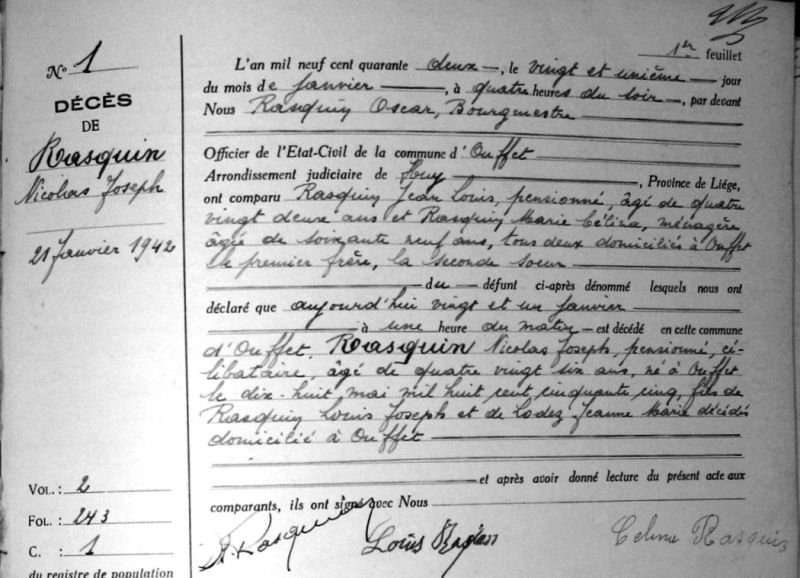 1er feuillet
N° 1
DÉCÈS
DE
Rasquin
Nicolas Joseph
21 Janvier 1942
L'an mil neuf cent quarante deux, le vingt et unième jour
du mois de Janvier, à quatre heures du soir, par devant
Nous Rasquin Oscar, Bourgmestre
Officier de l'Etat-Civil de la commune d'Ouffet
Arrondissement judiciaire de Huy, Province de Liége,
ont comparu Rasquin Jean Louis, pensionné, âgé de quatre
vingt deux ans et Rasquin Marie Célina, ménagère
âgée de soixante neuf ans, tous deux domiciliés à Ouffet
le premier frère, la seconde soeur
du défunt ci-après dénommé lesquels nous ont
déclaré que aujourd'hui vingt et un Janvier
à une heure du matin est décédé en cette commune
d'Ouffet, Rasquin Nicolas Joseph, pensionné, cé-
libataire, âgé de quatre vingt six ans, né à Ouffet
le dix-huit mai mil huit cent cinquante cinq, fils de
Rasquin Louis Joseph et de Lodez Jeanne Marie décédés
domicilié à Ouffet
et après avoir donné lecture du présent acte aux
comparants, ils ont signé avec Nous
Rasquin
Louis
Celina Rasquin
VOL. : 2
FOL. : 243
C. : 1
du registre de population